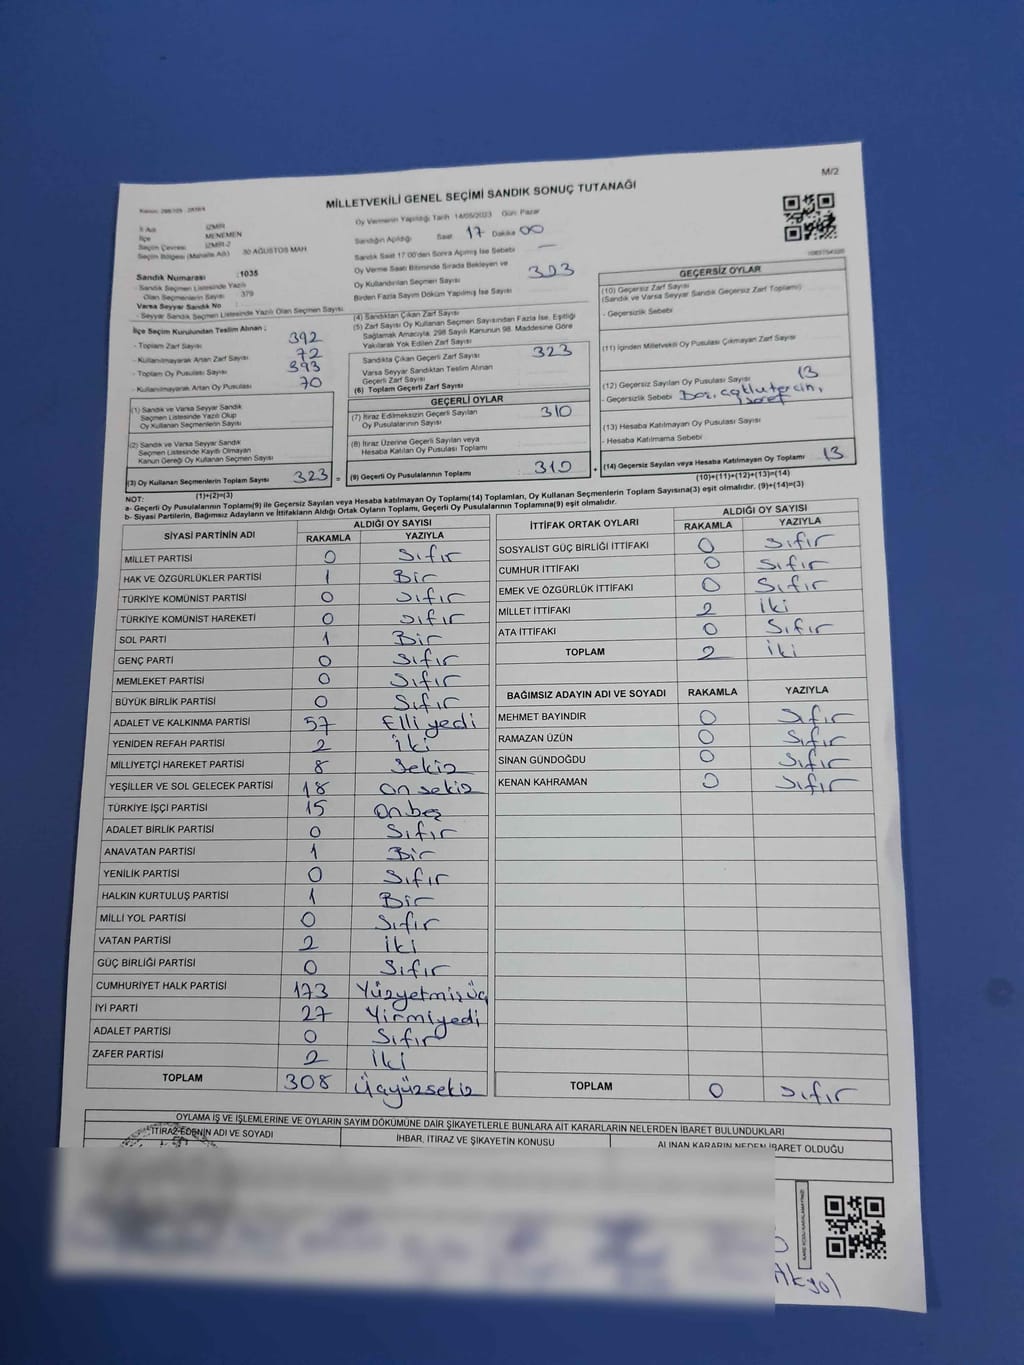 M/2
MİLLETVEKİLİ GENEL SEÇİMİ SANDIK SONUÇ TUTANAĞI
İl Adı İZMİR
İlçe MENEMEN
Seçim Çevresi İZMİR-2
Seçim Bölgesi (Mahalle Adı) 30 AĞUSTOS MAH
Sandık Numarası :1035
- Sandık Seçmen Listesinde Yazılı
Olan Seçmenlerin Sayısı 379
Varsa Seyyar Sandık No
- Seyyar Sandık Seçmen Listesinde Yazılı Olan Seçmen Sayısı
Oy Vermenin Yapıldığı Tarih 14/05/2023 Gün Pazar
Sandığın Açıldığı Saat 17 Dakika 00
Sandık Saat 17:00'den Sonra Açılmış İse Sebebi —
Oy Verme Saati Bitiminde Sırada Bekleyen ve
Oy Kullandırılan Seçmen Sayısı
Birden Fazla Sayım Döküm Yapılmış İse Sayısı
İlçe Seçim Kurulundan Teslim Alınan ;
- Toplam Zarf Sayısı 392
- Kullanılmayarak Artan Zarf Sayısı 72
- Toplam Oy Pusulası Sayısı 393
- Kullanılmayarak Artan Oy Pusulası 70
(1) Sandık ve Varsa Seyyar Sandık
Seçmen Listesinde Yazılı Olup
Oy Kullanan Seçmenlerin Sayısı
(2) Sandık ve Varsa Seyyar Sandık
Seçmen Listesinde Kayıtlı Olmayan
Kanun Gereği Oy Kullanan Seçmen Sayısı
(3) Oy Kullanan Seçmenlerin Toplam Sayısı : 323 =
(1)+(2)=(3)
(4) Sandıktan Çıkan Zarf Sayısı
(5) Zarf Sayısı Oy Kullanan Seçmen Sayısından Fazla İse, Eşitliği
Sağlamak Amacıyla; 298 Sayılı Kanunun 98. Maddesine Göre
Yakılarak Yok Edilen Zarf Sayısı
Sandıkta Çıkan Geçerli Zarf Sayısı 323
Varsa Seyyar Sandıktan Teslim Alınan
Geçerli Zarf Sayısı
(6) Toplam Geçerli Zarf Sayısı
GEÇERLİ OYLAR
(7) İtiraz Edilmeksizin Geçerli Sayılan
Oy Pusulalarının Sayısı 310
(8) İtiraz Üzerine Geçerli Sayılan veya
Hesaba Katılan Oy Pusulası Toplamı
(9) Geçerli Oy Pusulalarının Toplamı : 310 +
GEÇERSİZ OYLAR
(10) Geçersiz Zarf Sayısı
(Sandık ve Varsa Seyyar Sandık Geçersiz Zarf Toplamı)
- Geçersizlik Sebebi
(11) İçinden Milletvekili Oy Pusulası Çıkmayan Zarf Sayısı
(12) Geçersiz Sayılan Oy Pusulası Sayısı 13
- Geçersizlik Sebebi
(13) Hesaba Katılmayan Oy Pusulası Sayısı
- Hesaba Katılmama Sebebi
(14) Geçersiz Sayılan veya Hesaba Katılmayan Oy Toplamı 13
(10)+(11)+(12)+(13)=(14)
NOT:
a- Geçerli Oy Pusulalarının Toplamı(9) ile Geçersiz Sayılan veya Hesaba katılmayan Oy Toplamı(14) Toplamları, Oy Kullanan Seçmenlerin Toplam Sayısına(3) eşit olmalıdır. (9)+(14)=(3)
b- Siyasi Partilerin, Bağımsız Adayların ve İttifakların Aldığı Ortak Oyların Toplamı, Geçerli Oy Pusulalarının Toplamına(9) eşit olmalıdır.
SİYASİ PARTİNİN ADI ALDIĞI OY SAYISI
RAKAMLA YAZIYLA
MİLLET PARTİSİ 0 Sıfır
HAK VE ÖZGÜRLÜKLER PARTİSİ 1 Bir
TÜRKİYE KOMÜNİST PARTİSİ 0 Sıfır
TÜRKİYE KOMÜNİST HAREKETİ 0 Sıfır
SOL PARTİ 1 Bir
GENÇ PARTİ 0 Sıfır
MEMLEKET PARTİSİ 0 Sıfır
BÜYÜK BİRLİK PARTİSİ 0 Sıfır
ADALET VE KALKINMA PARTİSİ 57 Elli yedi
YENİDEN REFAH PARTİSİ 2 İki
MİLLİYETÇİ HAREKET PARTİSİ 8 Sekiz
YEŞİLLER VE SOL GELECEK PARTİSİ 18 On sekiz
TÜRKİYE İŞÇİ PARTİSİ 15 Onbeş
ADALET BİRLİK PARTİSİ 0 Sıfır
ANAVATAN PARTİSİ 1 Bir
YENİLİK PARTİSİ 0 Sıfır
HALKIN KURTULUŞ PARTİSİ 1 Bir
MİLLİ YOL PARTİSİ 0 Sıfır
VATAN PARTİSİ 2 İki
GÜÇ BİRLİĞİ PARTİSİ 0 Sıfır
CUMHURİYET HALK PARTİSİ 173 Yüzyetmişüç
İYİ PARTİ 27 Yirmiyedi
ADALET PARTİSİ 0 Sıfır
ZAFER PARTİSİ 2 İki
TOPLAM 308 Üçyüzsekiz
İTTİFAK ORTAK OYLARI ALDIĞI OY SAYISI
RAKAMLA YAZIYLA
SOSYALİST GÜÇ BİRLİĞİ İTTİFAKI 0 Sıfır
CUMHUR İTTİFAKI 0 Sıfır
EMEK VE ÖZGÜRLÜK İTTİFAKI 0 Sıfır
MİLLET İTTİFAKI 2 İki
ATA İTTİFAKI 0 Sıfır
TOPLAM 2 İki
BAĞIMSIZ ADAYIN ADI VE SOYADI RAKAMLA YAZIYLA
MEHMET BAYINDIR 0 Sıfır
RAMAZAN ÜZÜN 0 Sıfır
SİNAN GÜNDOĞDU 0 Sıfır
KENAN KAHRAMAN 0 Sıfır
TOPLAM 0 Sıfır
OYLAMA İŞ VE İŞLEMLERİNE VE OYLARIN SAYIM DÖKÜMÜNE DAİR ŞİKAYETLERLE BUNLARA AİT KARARLARIN NELERDEN İBARET BULUNDUKLARI
İTİRAZ EDENİN ADI VE SOYADI İHBAR, İTİRAZ VE ŞİKAYETİN KONUSU ALINAN KARARIN NEDEN İBARET OLDUĞU
Akyol